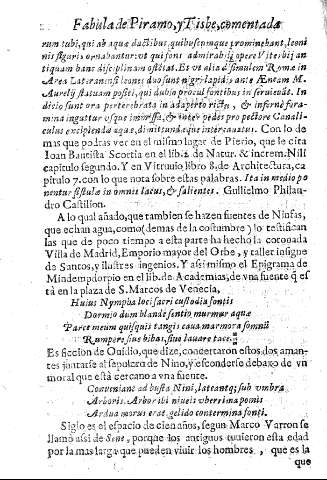 Fabula de Piramo, y Tisbe, comentada
rum tubi, qui ab aquæ ductibus, quibuscumque prominebant, leoni
nis figuris ornabantur: vt qui sont admirabili opere Viterbij an
tiquam hanc disciplinam ostētāt. Et vt alia dissimulem Romæ in
Area Lateranensi leones duo sunt nigri lapidis ante Æneam M.
Aurelij statuam positi, qui dubio procul fontibus inseruieūt. In
dicio sunt ora perterebrata in adaperto rictu, & inferne fora-
mina inguttur vsque immissa, & inter pedes pro pectore Canali-
culus excipienda aquæ, dimittendæque intercauatus. Con lo de
mas que podras ver en el mismo lugar de Pierio, que le cita
Ioan Bautista Scortia en el lib. 2. de Natur. & increm. Nili
capitulo segundo. Y en Vitruuio libro 8. de Architectura, ca
pitulo 7. con lo que nota sobre estas palabras. Ita in medio po
nentur fistulæ in omnis lacus, & salientes. Gullielmo Philan-
dro Castilion.
A lo qual añado, que tambien se hazen fuentes de Ninfas,
que echan agua, como (demas de la costumbre) lo testifican
las que de poco tiempo a esta parte ha hecho la coronada
Villa de Madrid, Emporio mayor del Orbe, y taller insigne
de Santos, y ilustres ingenios. Y assimismo el Epigrama de
Mindempdorpio en el lib. de Academias, de vna fuente q̃ es
tà en la plaça de S. Marcos de Venecia,
Huius Nympha loci sacri custodia fontis
Dormio dum blandæ sentio murmur aquæ
Parce meum quisquis tangis caua marmora somnū
Rumpere, siue bibas, siue lauare tace.
Es ficcion de Ouidio, que dize, concertaron estos dos aman-
tes juntarse al sepulcro de Nino, y esconderse debaxo de vn
moral que està cercano a vna fuente.
Conueniant ad busta Nini, lateantq; sub vmbra
Arboris. Arbor ibi niueis vberrima pomis
Ardua morus erat gelido contermina fonti.
Siglo es el espacio de cien años, segun Marco Varron se
llamo assi de Sene, porque los antiguos tuuieron esta edad
por la mas larga que pueden viuir los hombres, que es la
que